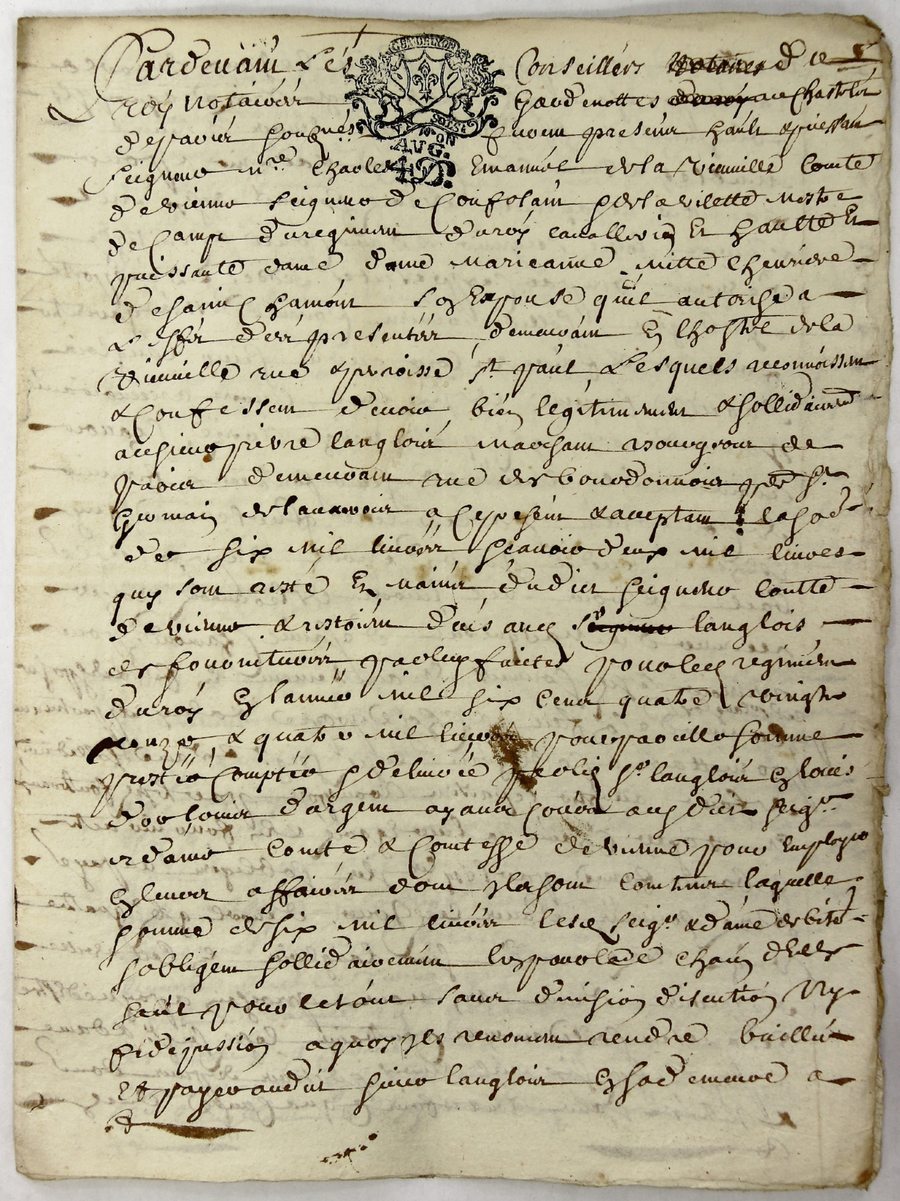 Pardevant Les Conseillers notaires de ce
roy notaires Gardenottes au Chastelet
de paris soubznés furent presens hault & puissant
Seigneur Mre Charles Emanuel de la Vieuville Comte
de vienne Seigneur de Confolain & de la vilette mestre
de Camp du regiment du roy cavallerie Et haulte Et
puissante dame dame marie anne mitte chevriere
de sainct chamont son Espouse quil autorise a
L'effet des presentes demeurant En L'hostel de la
Vieuville rue & paroisse St paul Lesquels reconnoissent
& Confessent devoir bien legitimement & sollidairement
au sieur pierre langlois marchant bourgeois de
paris demeurant rue des bourdonnois psse St
Germain de lauxerois a ce present & acceptant la so de
de six mil livres sçavoir deux mil livres
quy sont resté En mains dudict seigneur Comte
de vienne & restoient deus aud Sr langlois
de fournitures par luy faictes pour led regiment
du roy En lannée mil six cent quatre vingt
onze & quatre mil livres pour pareille somme
prestée Comptée & delivrée par led Sr langlois En louis
d'or louis d'argent ayant cours ausdict seigr
& dame Comte & Comtesse de vienne pour Employer
En leurs affaires dont ilz sont Contens laquelle
somme de six mil livres lesd seigr & dame debiteurs
sobligent sollidairement lun pour lautre chacun deux
seul pour le tout sans division discution ny
fidejussion a quoy ils renoncent rendre bailler
Et payer audict sieur langlois En sa demeure a